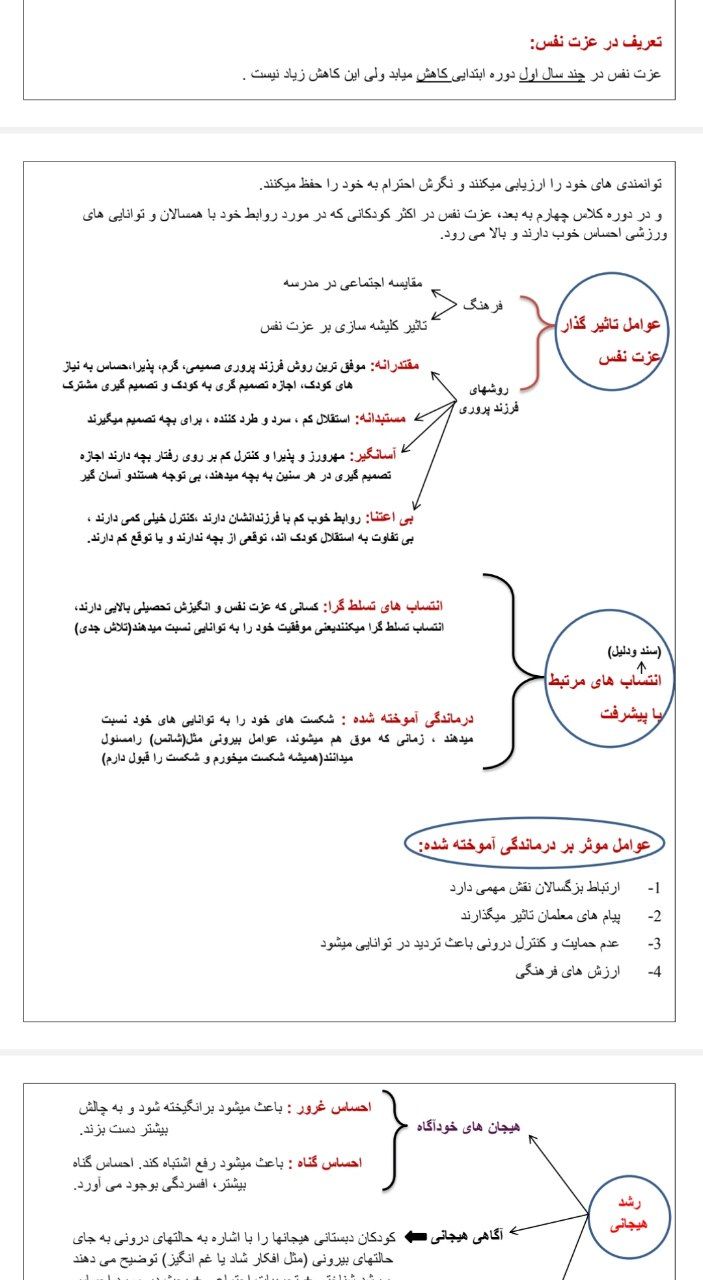 تعریف در عزت نفس:
عزت نفس در چند سال اول دوره ابتدایی کاهش میابد ولی این کاهش زیاد نیست .
توانمندی های خود را ارزیابی میکنند و نگرش احترام به خود را حفظ میکنند.
و در دوره کلاس چهارم به بعد، عزت نفس در اکثر کودکانی که در مورد روابط خود با همسالان و توانایی های
ورزشی احساس خوب دارند و بالا می رود.
عوامل تاثیر گذار
عزت نفس
فرهنگ
مقایسه اجتماعی در مدرسه
تاثیر کلیشه سازی بر عزت نفس
روشهای
فرزند پروری
مقتدرانه: موفق ترین روش فرزند پروری صمیمی، گرم، پذیرا،حساس به نیاز
های کودک، اجازه تصمیم گری به کودک و تصمیم گیری مشترک
مستبدانه: استقلال کم ، سرد و طرد کننده ، برای بچه تصمیم میگیرند
آسانگیر: مهرورز و پذیرا و کنترل کم بر روی رفتار بچه دارند اجازه
تصمیم گیری در هر سنین به بچه میدهند، بی توجه هستندو آسان گیر
بی اعتنا: روابط خوب کم با فرزندانشان دارند ،کنترل خیلی کمی دارند ،
بی تفاوت به استقلال کودک اند، توقعی از بچه ندارند و یا توقع کم دارند.
(سند ودلیل)
انتساب های مرتبط
با پیشرفت
انتساب های تسلط گرا: کسانی که عزت نفس و انگیزش تحصیلی بالایی دارند،
انتساب تسلط گرا میکنندیعنی موفقیت خود را به توانایی نسبت میدهند(تلاش جدی)
درماندگی آموخته شده : شکست های خود را به توانایی های خود نسبت
میدهند ، زمانی که موق هم میشوند، عوامل بیرونی مثل(شانس) رامسئول
میدانند(همیشه شکست میخورم و شکست را قبول دارم)
عوامل موثر بر درماندگی آموخته شده:
1- ارتباط بزگسالان نقش مهمی دارد
2- پیام های معلمان تاثیر میگذارند
3- عدم حمایت و کنترل درونی باعث تردید در توانایی میشود
4- ارزش های فرهنگی
رشد
هیجانی
هیجان های خودآگاه
احساس غرور : باعث میشود برانگیخته شود و به چالش
بیشتر دست بزند.
احساس گناه : باعث میشود رفع اشتباه کند. احساس گناه
بیشتر، افسردگی بوجود می آورد.
آگاهی هیجانی
کودکان دبستانی هیجانها را با اشاره به حالتهای درونی به جای
حالتهای بیرونی (مثل افکار شاد یا غم انگیز) توضیح می دهند